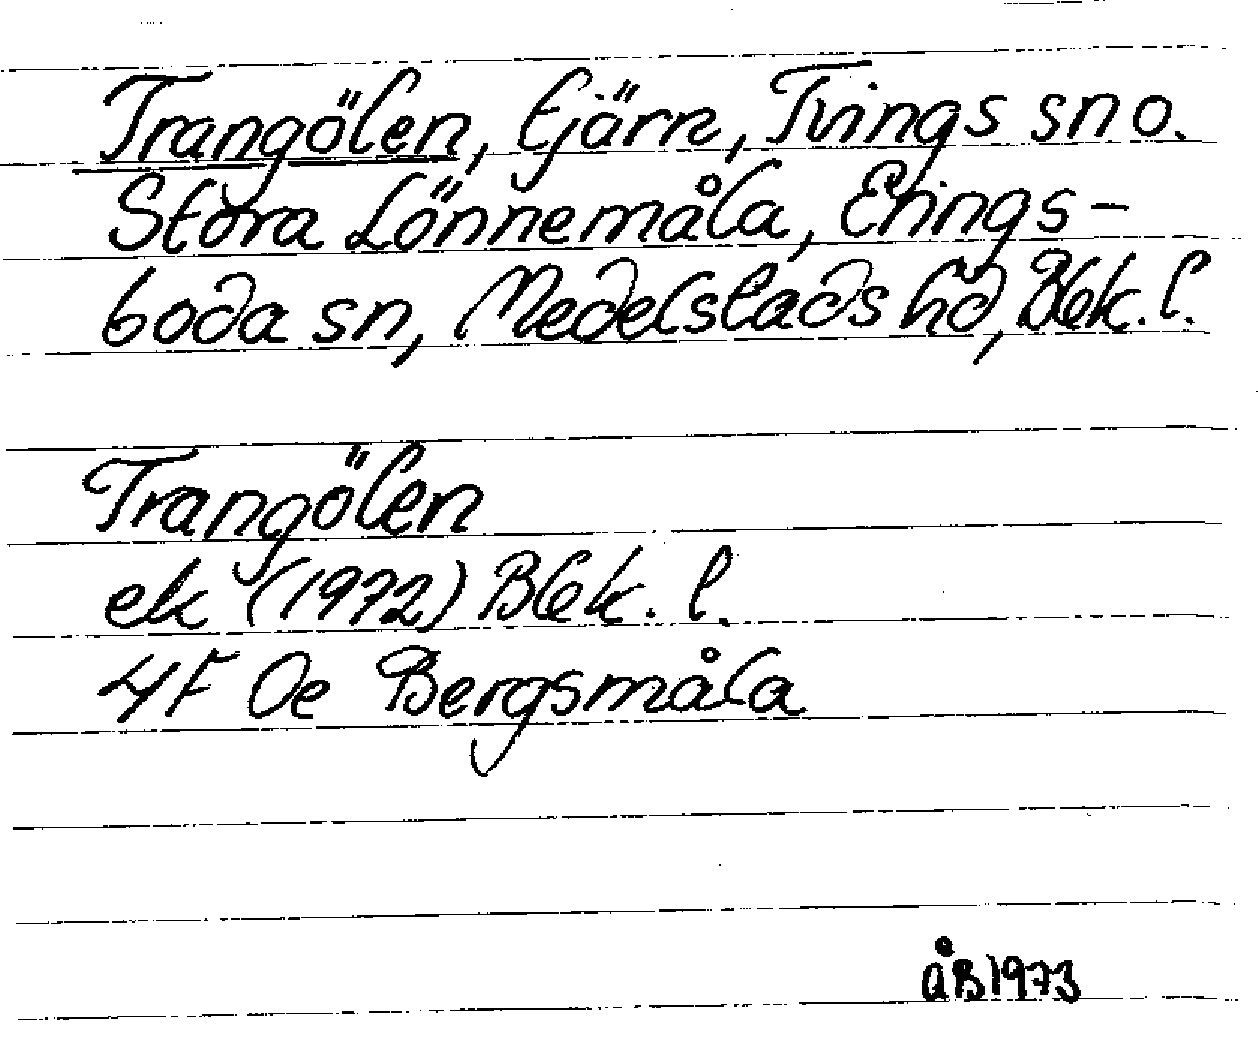 Trangölen, tjärn, Tvings sn o.
Stora Lönnemåla, Erings-
boda sn, Medelstads hd, Blek. l.
Trangölen
ek (1972) Blek. l.
4F 0e Bergsmåla
åB 1973